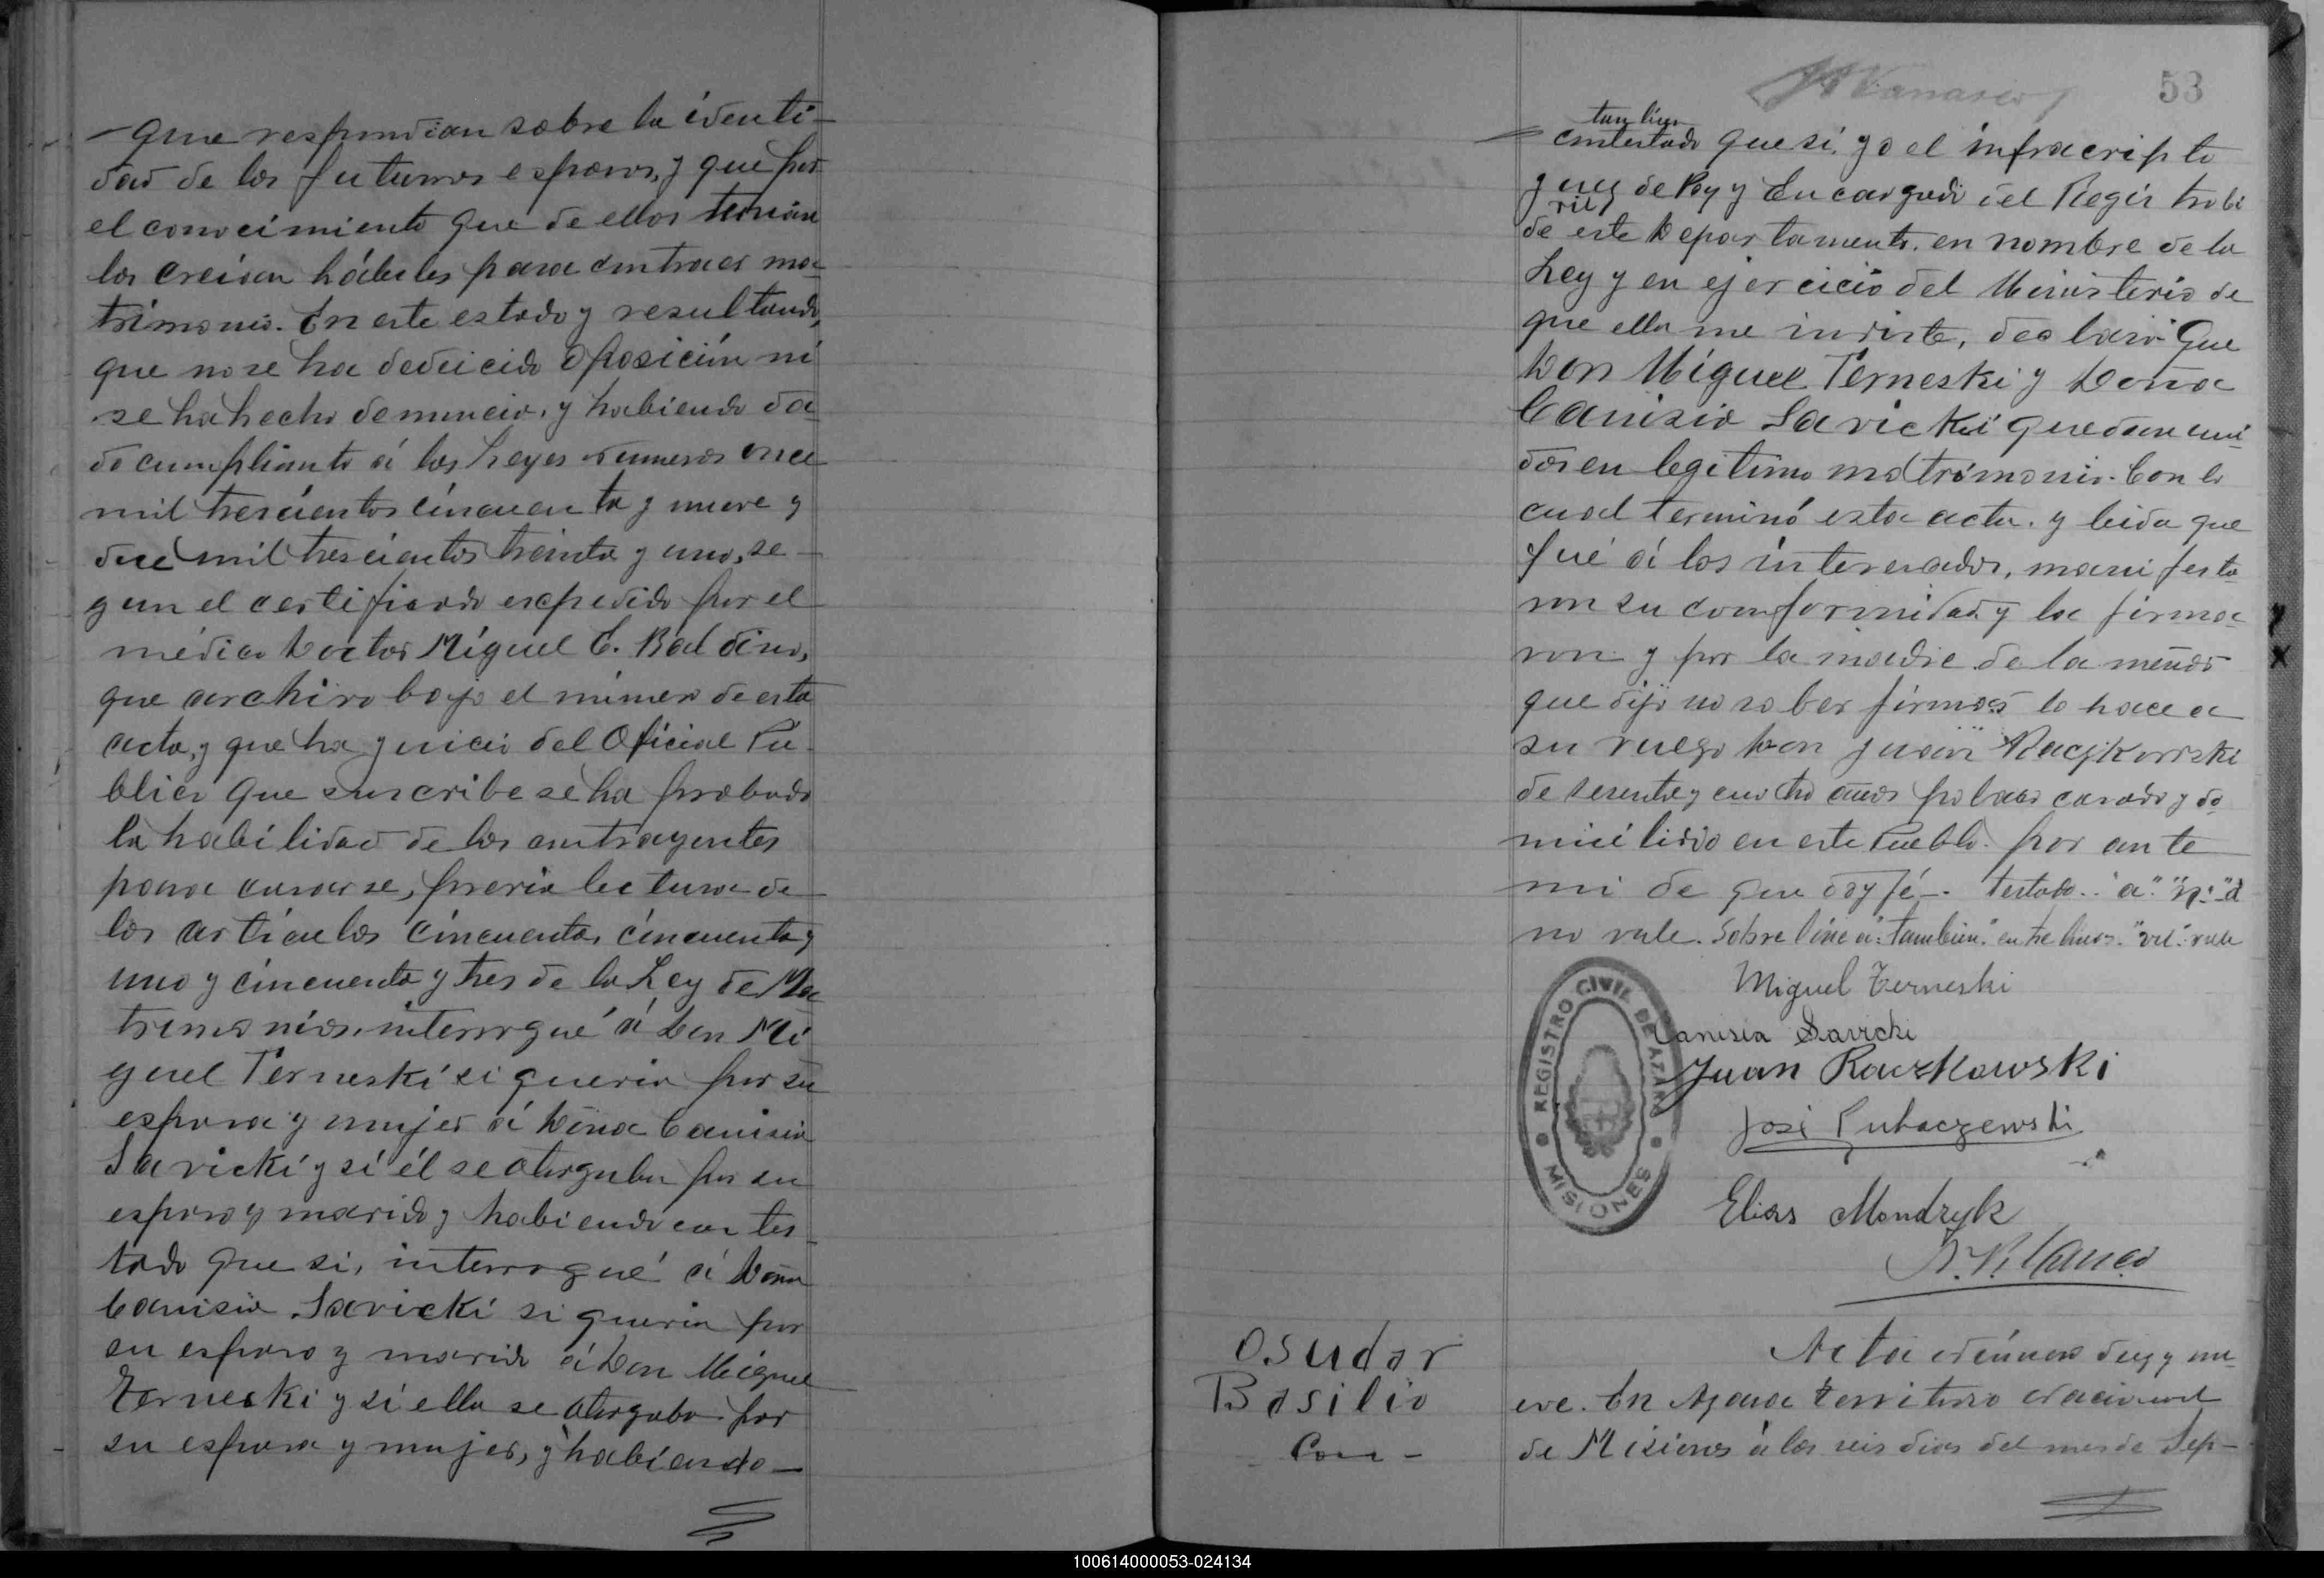 que respondian sobre la identi-
dad de los futuros esposos, y que por
el conocimiento que de ellos tenian
los creian hábiles para contraer ma-
trimonio. En este estado y resultando,
que no se ha deducido oposición ni
se ha hecho denuncia, y habiendo da-
do cumplimiento á las Leyes números once
mil trescientos cincuenta y nueve y
doce mil trescientos treinta y uno, se-
gun el certificado expedido por el
médico Doctor Miguel C. Baldino,
que archivo bajo el número de esta
acta, y que ha juicio del Oficial Pu-
blico que suscribe se ha probado
la habilidad de los contrayentes
para casarse, previa lectura de
los artículos cincuenta, cincuenta y
uno y cincuenta y tres de la Ley de Ma
trimonios, interrogué á Don Mi
guel Terneski si queria por su
esposa y mujer á Doña Canisia
Savicki y si él se otorgaba por su
esposo y marido y habiendo contes-
tado que si, interrogué á Doña
Canisia Savicki si queria por
su esposo y marido á Don Miguel
Terneski y si ella se otorgaba por
su esposa y mujer, y habiendo
53
tambien
contestado que si, yo el infracripto
Juez de Paz y Encargado del Registro Ci
vil
de este Departamento, en nombre de la
Ley y en ejercicio del Ministerio de
que ella me inviste, declaro que
Don Miguel Terneski y Doña
Canisia Savicki quedan uni-
dos en legitimo matrimonio. Con lo
cual terminó esta acta, y leida que
fué á los interesados, manifesta-
ron su conformidad y la firma-
ron y por la madre de la menor
que dijo no saber firmar lo hace a
su ruego Don Juan Raczkowski
de sesenta y cuatro años polaco casado y do
miciliado en este Pueblo. por ante
mi de que doy fé. Testado: "a" "n" "d"
no vale. Sobre línea: "tambien" entre lineas: "vil": vale
Miguel Terneski
Canisia Savicki
Juan Raczkowski
José Luhaczewski
Elias Mondzyk
REGISTRO CIVIL DE AZARA
MISIONES
Osudar
Basilio
Con
Acta número diez y nu-
eve. En Azara territorio nacional
de Misiones á los seis dias del mes de Sep-
100614000053-024134